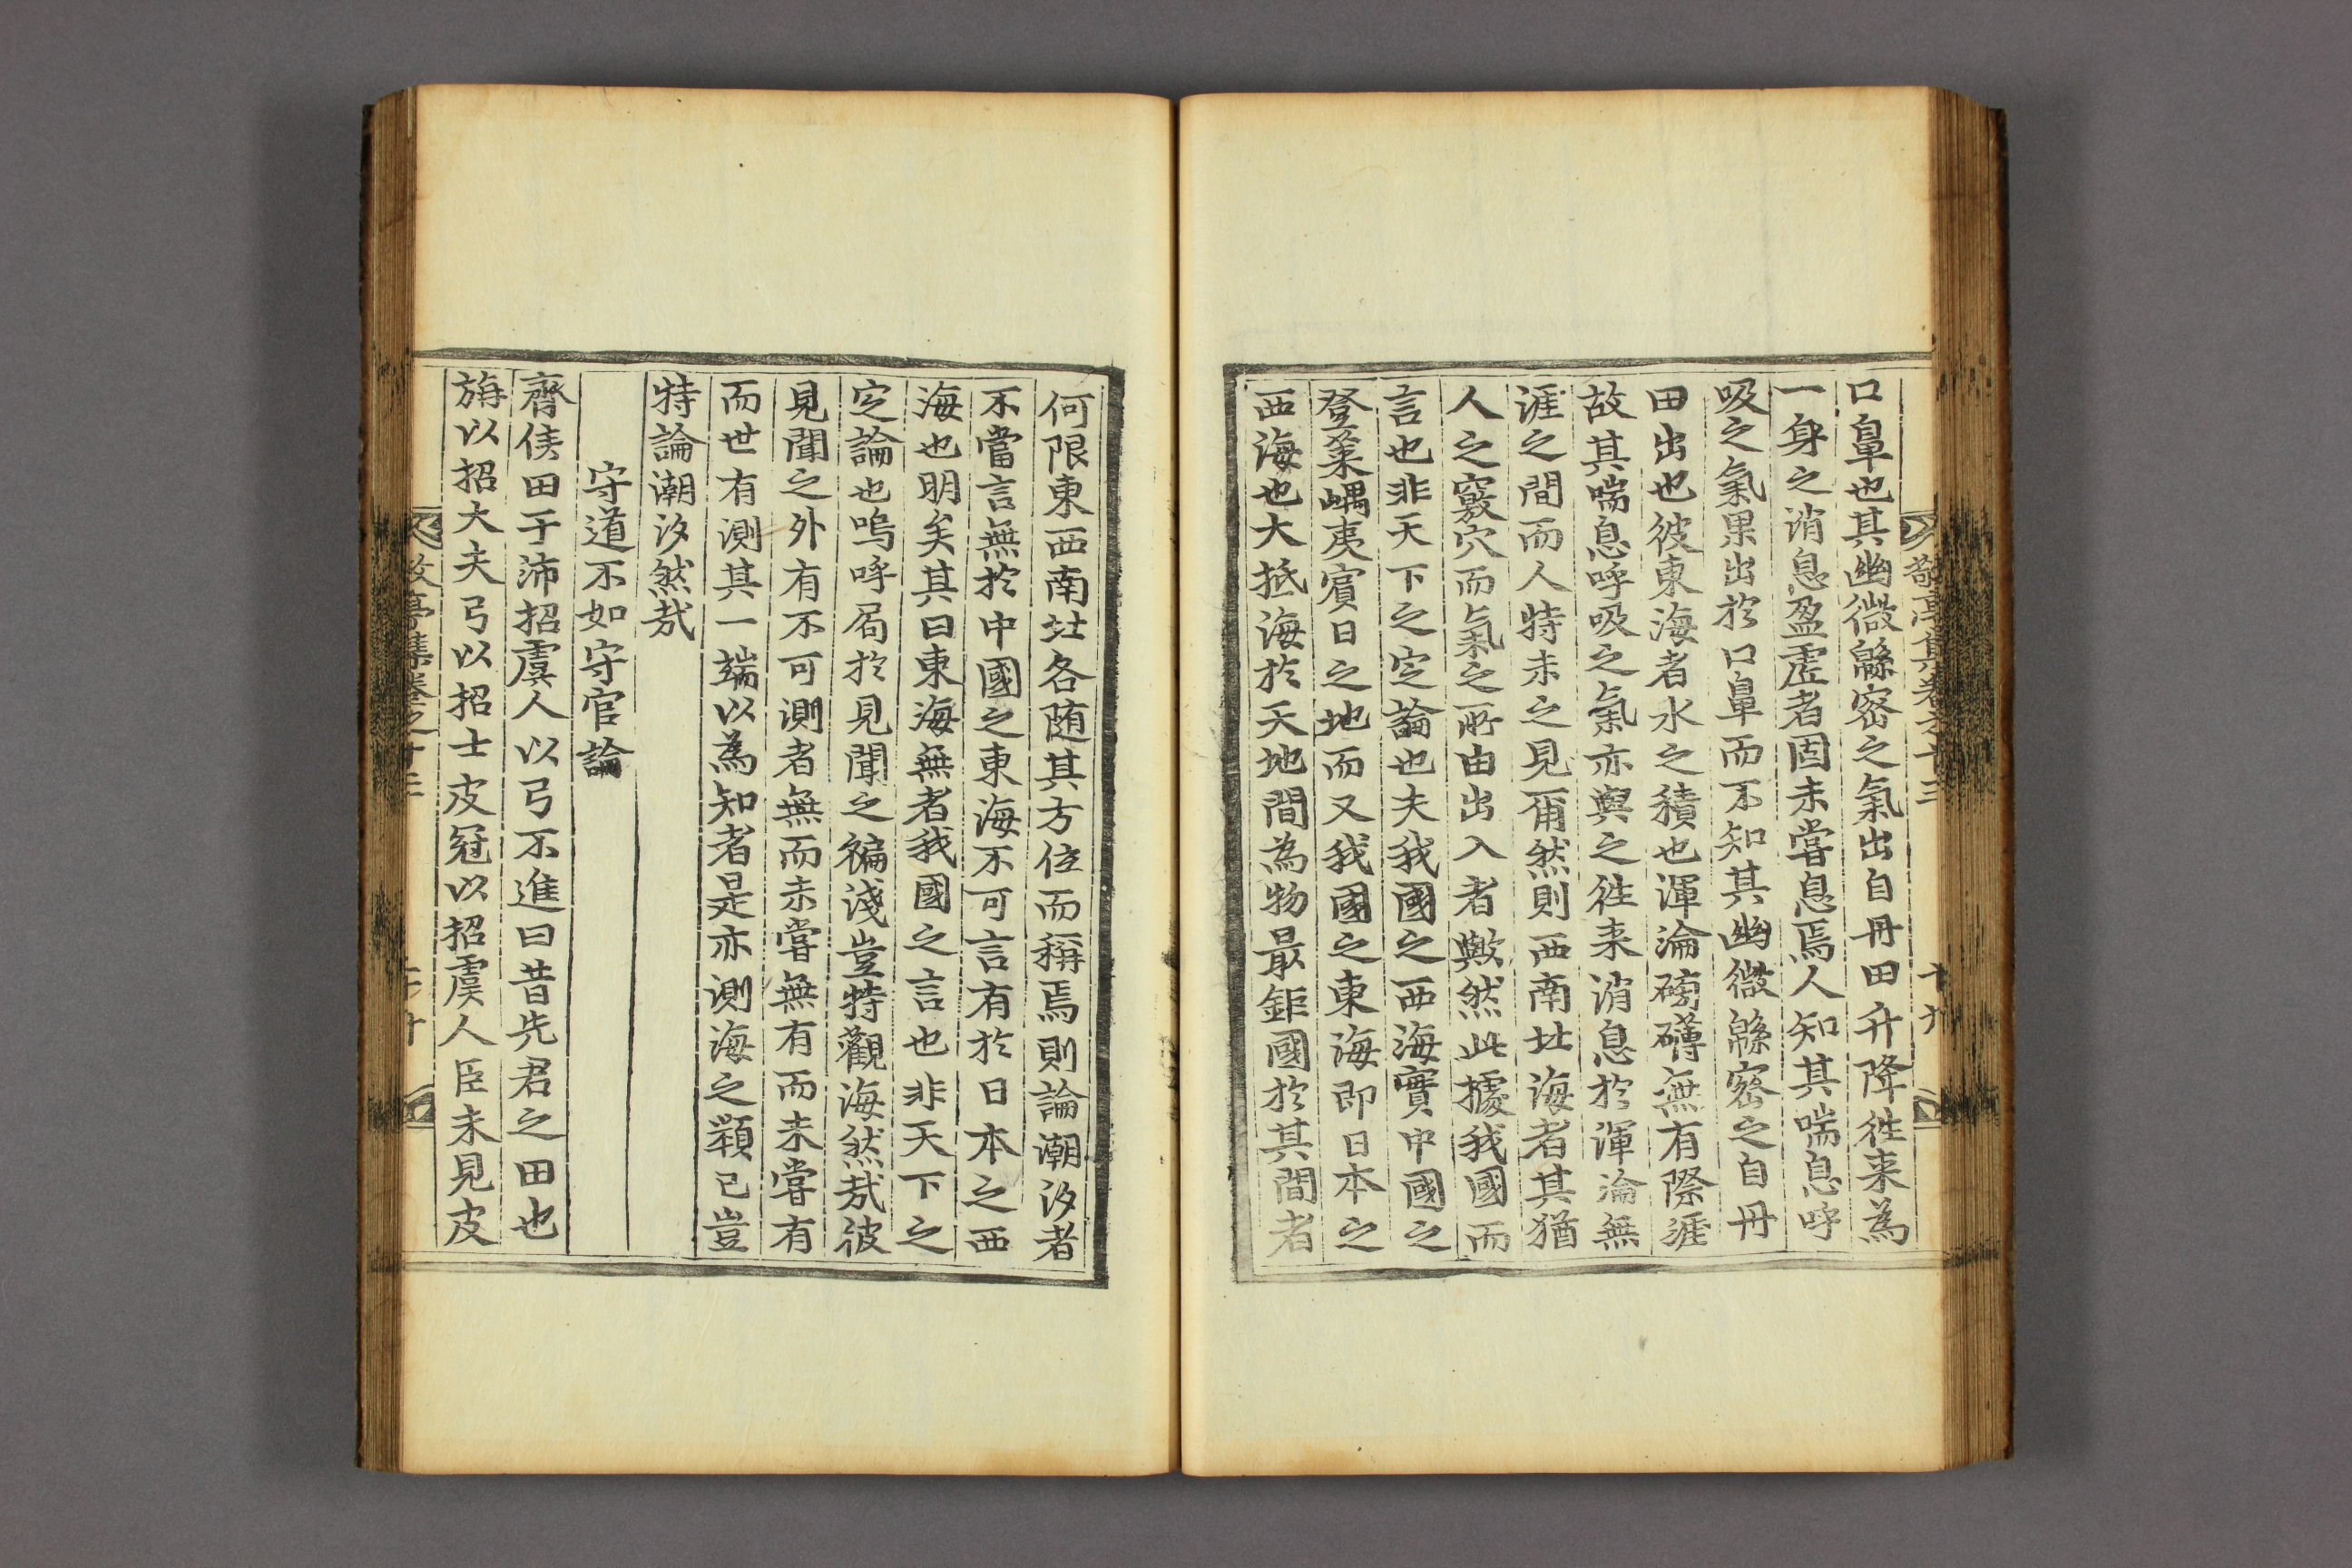 口鼻也其幽微緜密之氣出自丹田升降徃来為
一身之消息盈虛者固未嘗息焉人知其喘息呼
吸之氣果出於口鼻而不知其幽微緜密之自丹
田出也彼東海者水之積也渾淪磅礴無有際涯
故其喘息呼吸之氣亦與之徃来消息於渾淪無
涯之間而人特未之見爾然則西南北海者其猶
人之竅穴而氣之所由出入者歟然此據我國而
言也非天下之定論也夫我國之西海實中國之
登萊嵎夷賓日之地而又我國之東海即日本之
西海也大抵海於天地間為物最鉅國於其間者
何限東西南北各随其方位而稱焉則論潮汐者
不當言無於中國之東海不可言有於日本之西
海也明矣其曰東海無者我國之言也非天下之
定論也嗚呼局於見聞之褊淺豈特觀海然哉彼
見聞之外有不可測者無而未嘗無有而未嘗有
而世有測其一端以為知者是亦測海之類已豈
特論潮汐然哉
守道不如守官論
齊侯田于沛招虞人以弓不進曰昔先君之田也
旃以招大夫弓以招士皮冠以招虞人臣未見皮